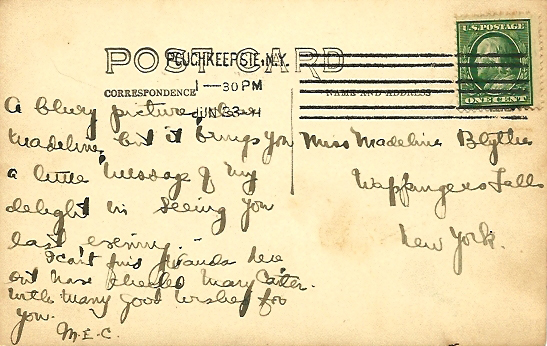 U.S. POSTAGE
ONE CENT
POUGHKEEPSIE, N.Y.
POST CARD
1—30 PM
CORRESPONDENCE
NAME AND ADDRESS
JUN 23
A blury picture, dear
Madeline, but it brings you
a little message of my
delight in seeing you
last evening.
I can't find
out Mary Carter.
With many good wishes for
you.
M.E.C.
Miss Madeline Blythe
Wappingers Falls
New York.